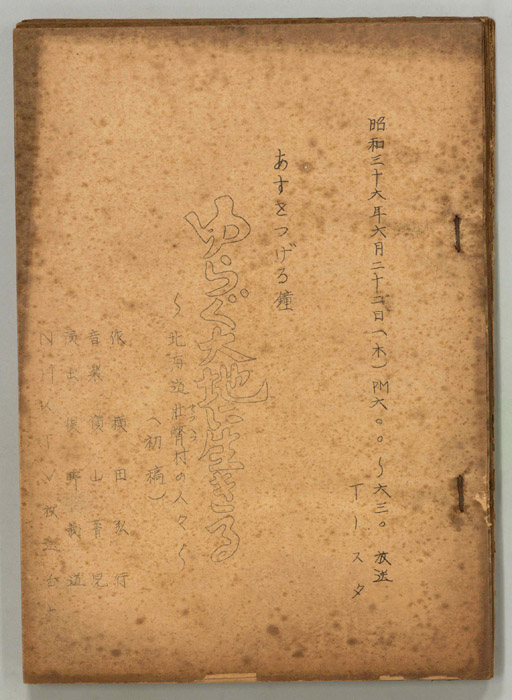 昭和三十六年六月二十二日(木)PM六〇〇〜六三〇 放送
Tースタ
あすをつげる鐘
ゆらぐ大地に生きる
〜北海道壮瞥村の人々〜
(初稿)
作 横田弘行
音楽 山 児
演出 野 義道
NHKTV放送台